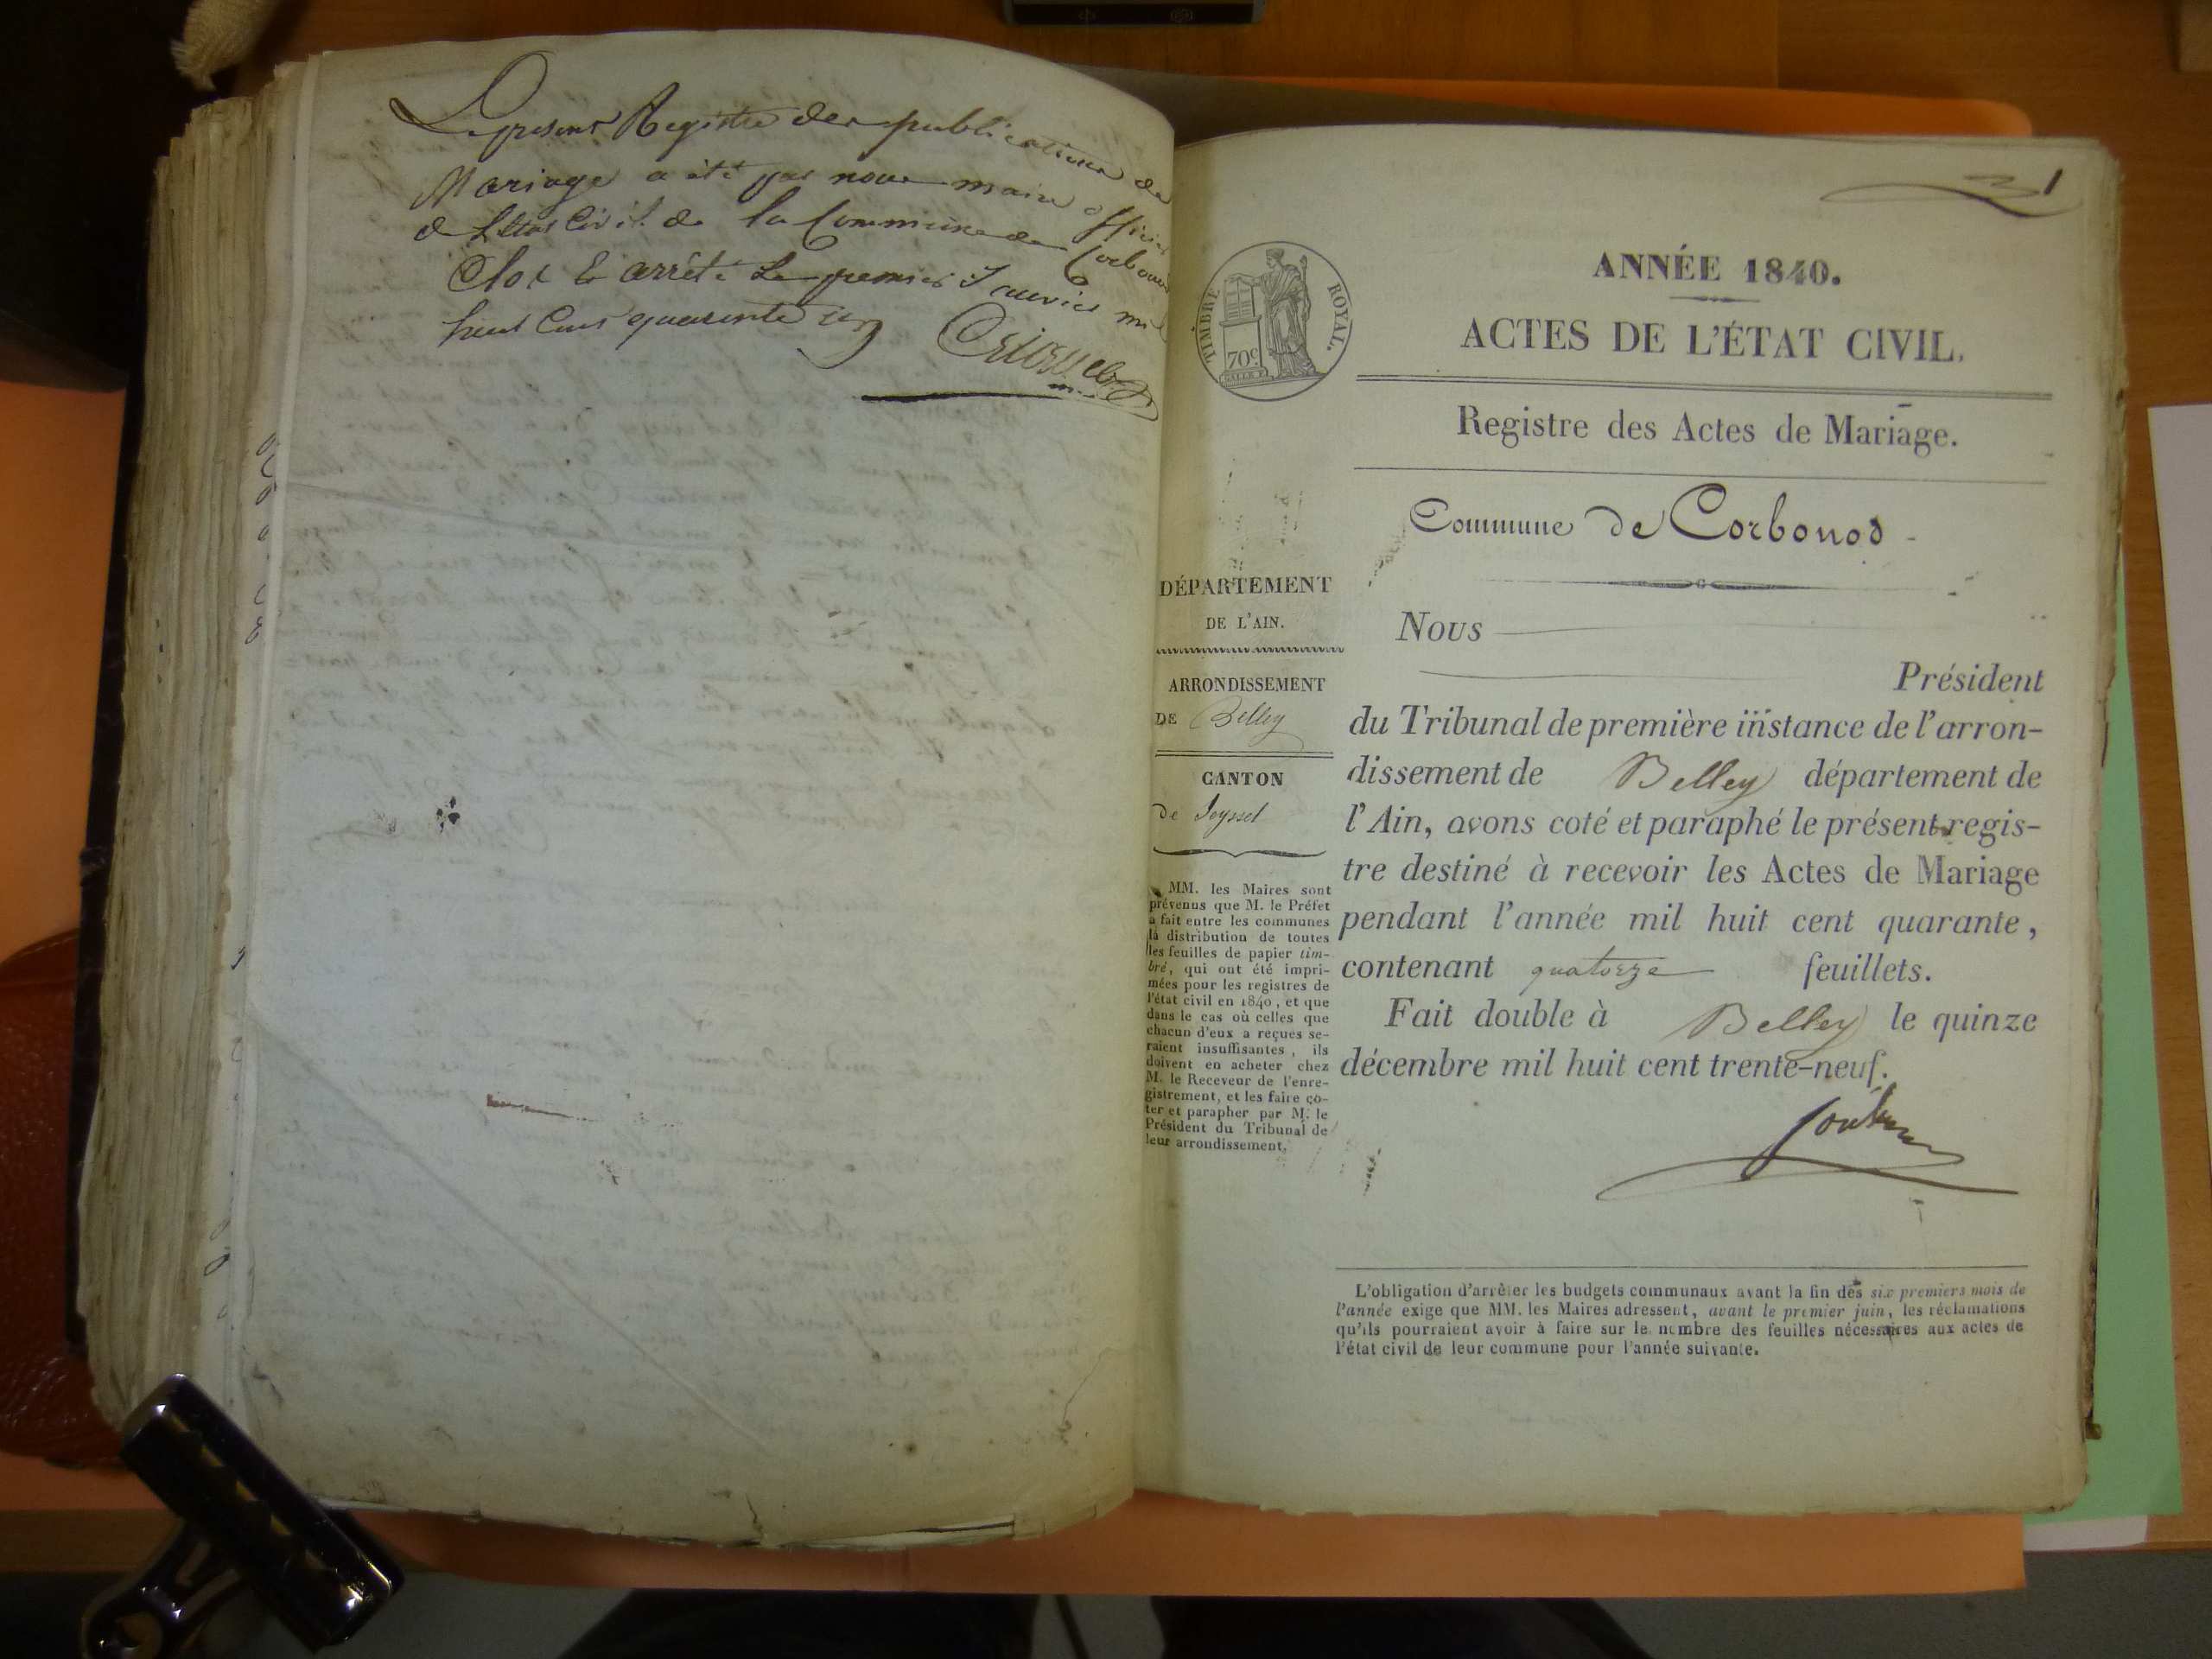 Le présent Registre des publications de
Mariage a été par nous maire officier
de L'Etat Civil de la Commune de Corbonod
Clos & arrêté Le premier Janvier mil
huit Cent quarante un
1
TIMBRE ROYAL.
70c
ANNÉE 1840.
ACTES DE L'ÉTAT CIVIL.
Registre des Actes de Mariage.
Commune de Corbonod
DÉPARTEMENT
DE L'AIN.
ARRONDISSEMENT
DE Belley
CANTON
de Seyssel
MM. les Maires sont
prévenus que M. le Préfet
a fait entre les communes
la distribution de toutes
les feuilles de papier tim-
bré, qui ont été impri-
mées pour les registres de
l'état civil en 1840, et que
dans le cas où celles que
chacun d'eux a reçues se-
raient insuffisantes, ils
doivent en acheter chez
M. le Receveur de l'enre-
gistrement, et les faire co-
ter et parapher par M. le
Président du Tribunal de
leur arrondissement.
Nous
Président
du Tribunal de première instance de l'arron-
dissement de Belley département de
l'Ain, avons coté et paraphé le présent regis-
tre destiné à recevoir les Actes de Mariage
pendant l'année mil huit cent quarante,
contenant quatorze feuillets.
Fait double à Belley le quinze
décembre mil huit cent trente-neuf.
L'obligation d'arrêter les budgets communaux avant la fin des six premiers mois de
l'année exige que MM. les Maires adressent, avant le premier juin, les réclamations
qu'ils pourraient avoir à faire sur le nombre des feuilles nécessaires aux actes de
l'état civil de leur commune pour l'année suivante.